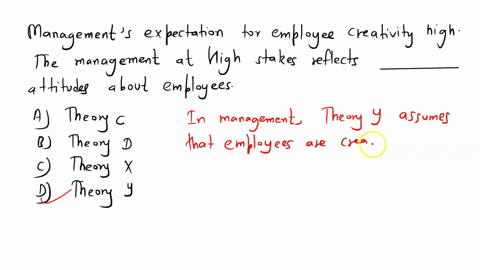 Management's expectation for employee creativity high.
The management at High stakes reflects ________
attitudes about employees.
A) Theory C
B) Theory D
C) Theory X
D) Theory Y
In management, Theory Y assumes
that employees are crea.